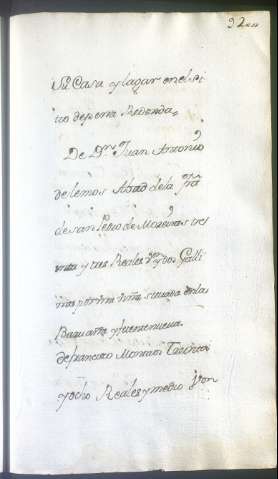 92
Su Casa y lagar en el Si
tio de pena Redonda,
De Dn. Juan Antonio
de lemos Abad de la
de san Pedro de Moreiras trei
nta y tres Reales Von y dos Galli
nas por una viña situada en la
y fuente nueva.
de francisco Montero Treinta
y ocho Reales y medio Von